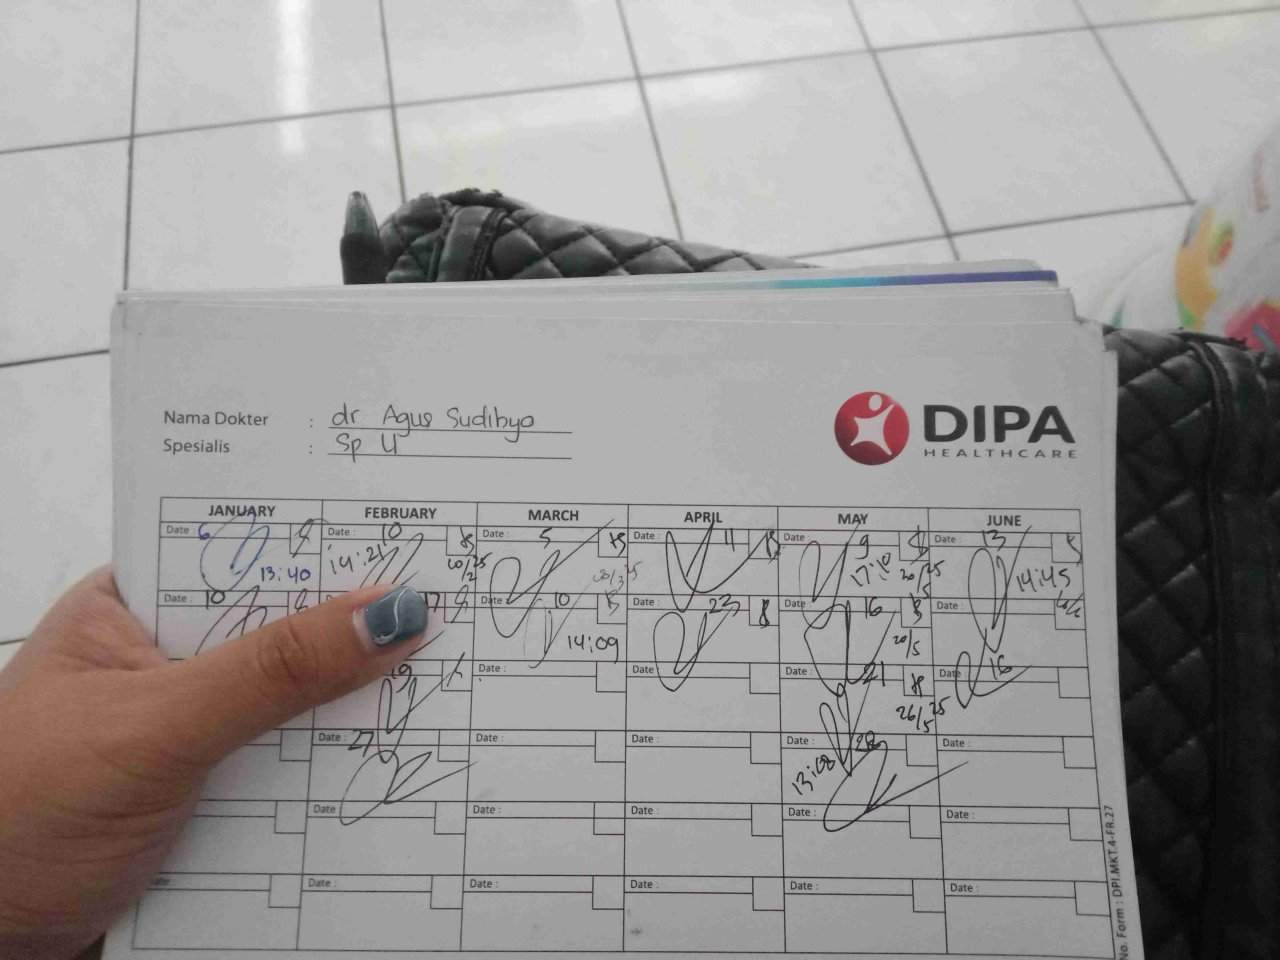 Nama Dokter : dr Agus Sudibyo
Spesialis : Sp U
DIPA
HEALTHCARE
JANUARY FEBRUARY MARCH APRIL MAY JUNE
Date : 6 Date : 10 Date : 5 Date : 11 Date : 9 Date : 13
13:40 14:21 20/2 25 20/3 25 17:10 20/5 25 14:45
Date : 10 17 Date : 10 Date : 23 Date : 16 Date :
14:09 20/5
19 Date : Date : Date : 21 Date : 16
26/5 25
Date : 27 Date : Date : Date : 28 Date :
13:08
Date : Date : Date : Date : Date :
Date : Date : Date : Date : Date : Date :
No. Form : DPI.MKT.4-FR.27